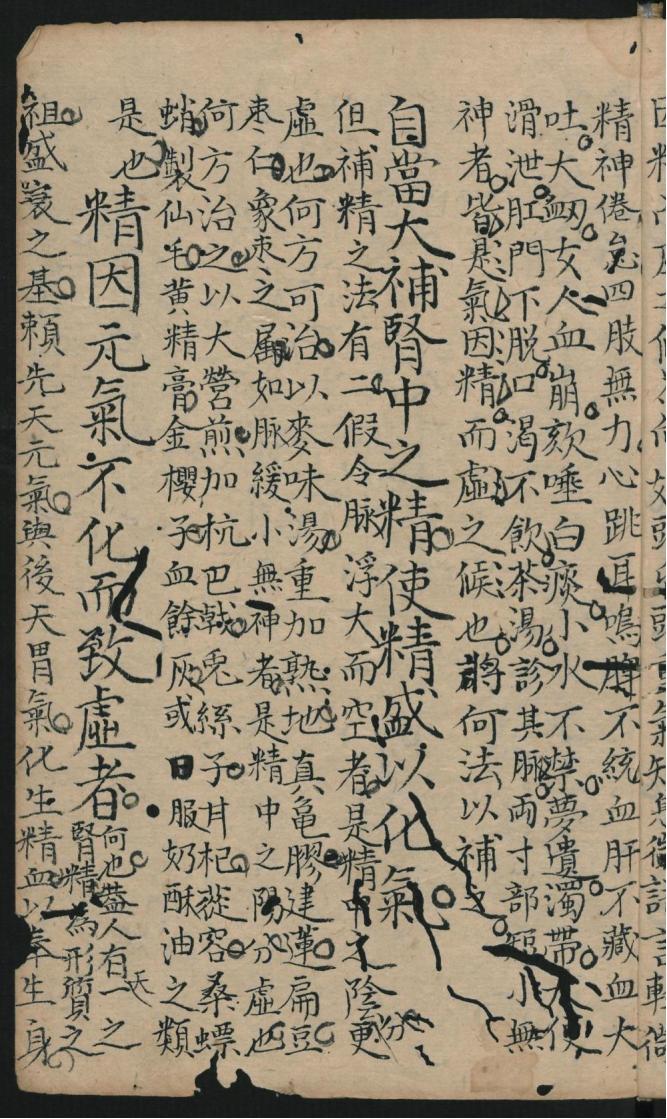 精神倦怠四肢無力心跳耳鳴脾不統血肝不藏血大
吐大衂女人血崩欬唾白痰小水不禁夢遺濁帶大便
滑泄肛門下脱口渴不飲茶湯診其脉兩寸部短小無
神者皆是氣因精而虛之候也將何法以補之
自當大補腎中之精使精盛以化氣
但補精之法有二假令脉浮大而空者是精中之陰分更
虛也何方可治以麥味湯重加熟地真亀膠建蓮扁豆
枣仁象枣之属如脉緩小無神者是精中之陽分虛也
何方治之以大營煎加杭巴戟兎絲子甘杞蓯容桑螵
蛸製仙毛黄精膏金櫻子血餘灰或日服奶酥油之類
是也
精因元氣不化而致虛者
何也盖人有一天之
腎精為形質之
祖盛衰之基賴先天元氣與後天胃氣化生精血以奉生身